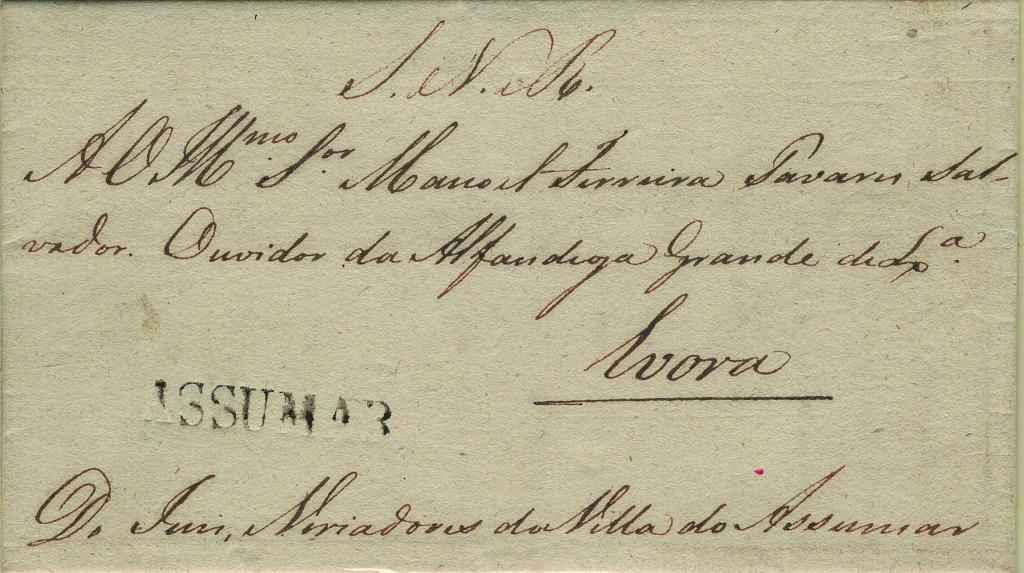 S. N. R.
A O Illmo Sor Manoel Ferreira Tavares Sal-
vador. Ouvidor da Alfandega Grande de Lxa.
Evora
ASSUMAR
Do Juis, Veriadores da Villa do Assumar